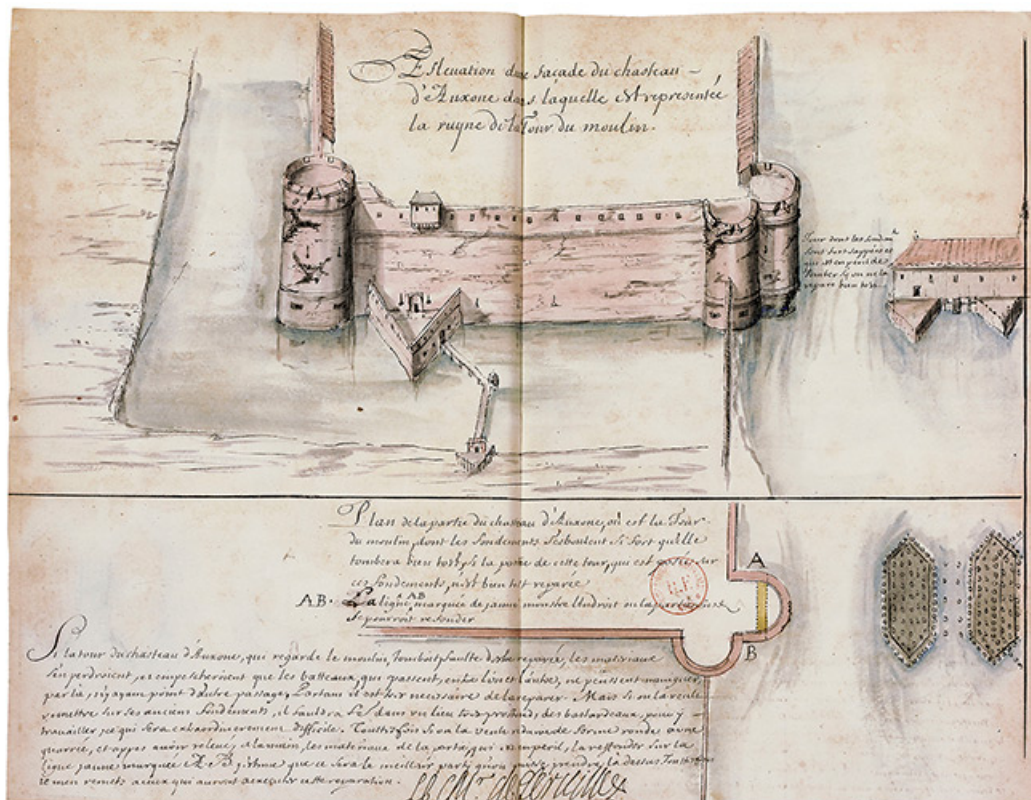 Eslevation dune façade du chasteau
d'Auxone dans laquelle est representée
la ruyne de la Tour du moulin.
Tour dont les fondem
sont sappées et
qui est en peril de
tomber sy on ne la
repare bien tost
Plan de la partie du chasteau d'Auxone, où est la Tour
du moulin, dont les fondements s'esboulent si fort qu'elle
tombera bien tost, si la partie de cette tour, qui est posée sur
ces fondements, n'est bien tost reparée
A B. La ligne A B marquée de jaune monstre l'endroit ou la
se pourroit refonder
A
B
Si la tour du chasteau d'Auxone, qui regarde le moulin, tomboit faulte d'estre reparée, les materiaux
s'en perdroient, et empescheroient que les batteaux, qui passent, entre l'un et l'autre, ne peussent naviguer
par là, n'y ayant point d'autre passage, Partant il est très necessaire de la reparer. Mais si on la veult
remettre sur ses anciens fondements, il fauldra fe dans un lieu très profond, des bastardeaux, pour y
travailler, ce qui sera extraordinairement difficile. Touttefois si on la veult de forme ronde
quarrée, et appes avoir releve, les materiaux de la partie, qui est en peril, la reffonder sur la
ligne jaune marquée A. B. j'estime que ce sera le meilleur party qu'on puisse prendre, la dessus
m'en remets a ceux qui auront a executer cette reparation.